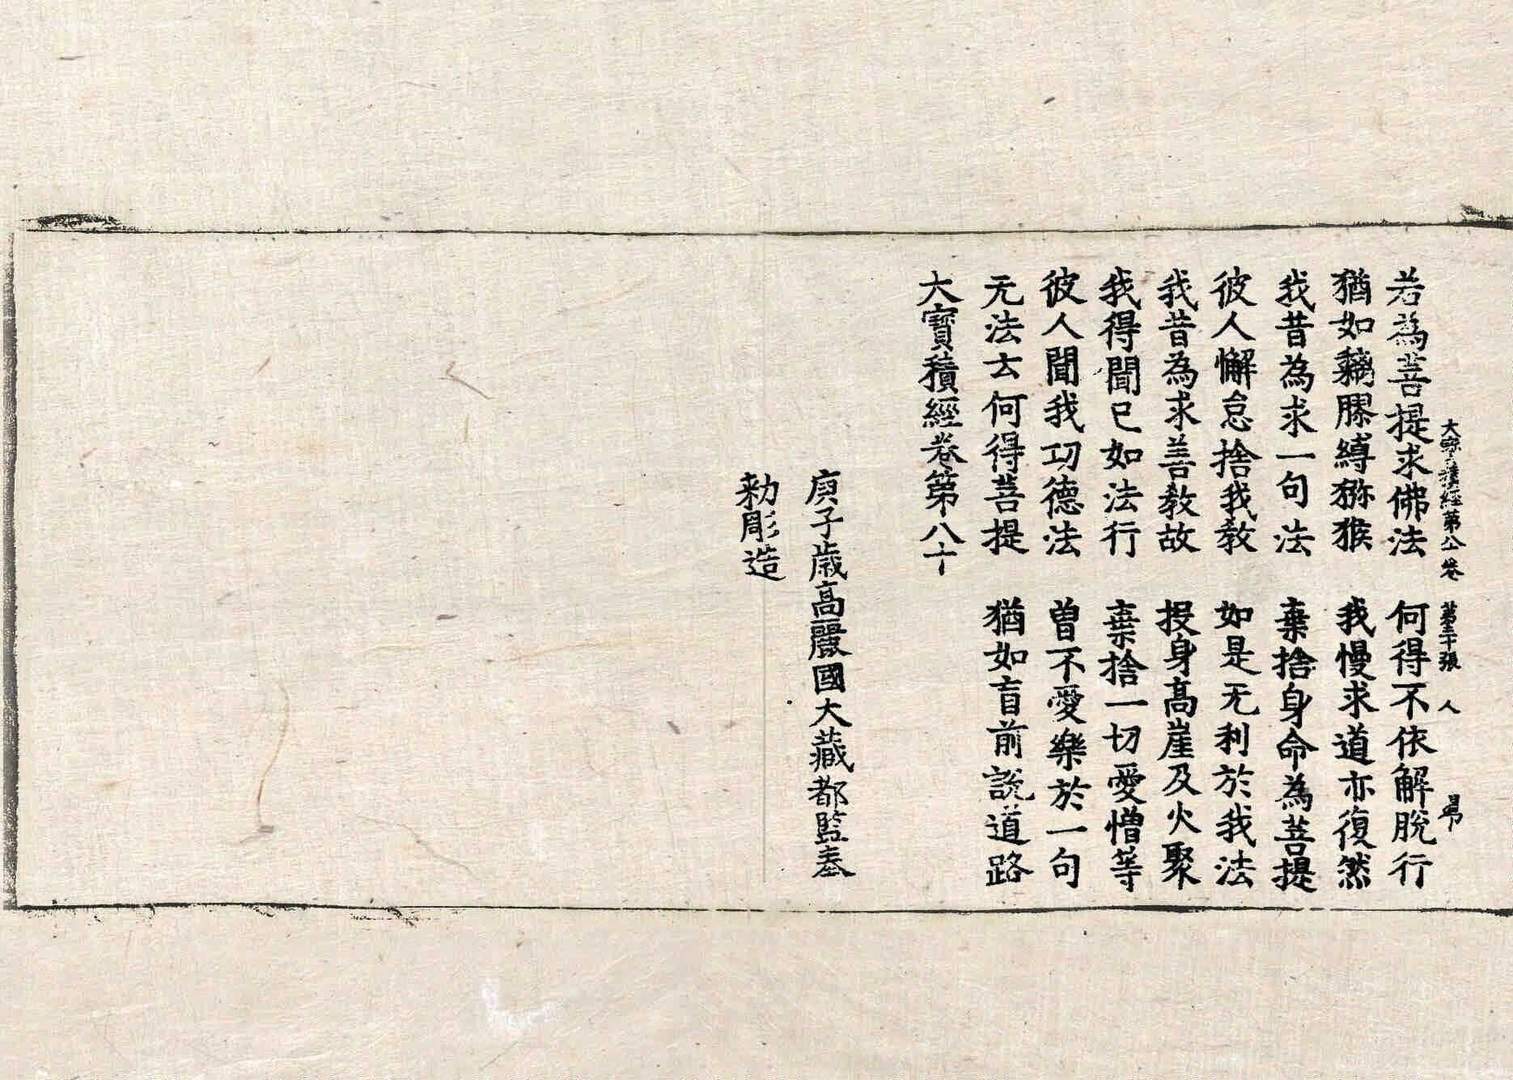 大寶積經第八十卷 第三十張 人 鳥
若為菩提求佛法 何得不依解脫行
猶如黐膠縛獼猴 我慢求道亦復然
我昔為求一句法 棄捨身命為菩提
彼人懈怠捨我教 如是无利於我法
我昔為求善教故 投身高崖及火聚
我得聞已如法行 棄捨一切愛憎等
彼人聞我功德法 曾不愛樂於一句
无法云何得菩提 猶如盲前說道路
大寶積經卷第八十
庚子歲高麗國大藏都監奉
勅彫造